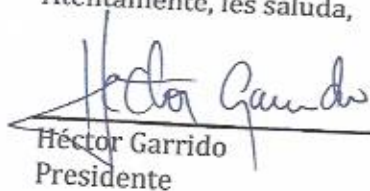 Atentamente, les saluda,
Héctor Garrido
Héctor Garrido
Presidente